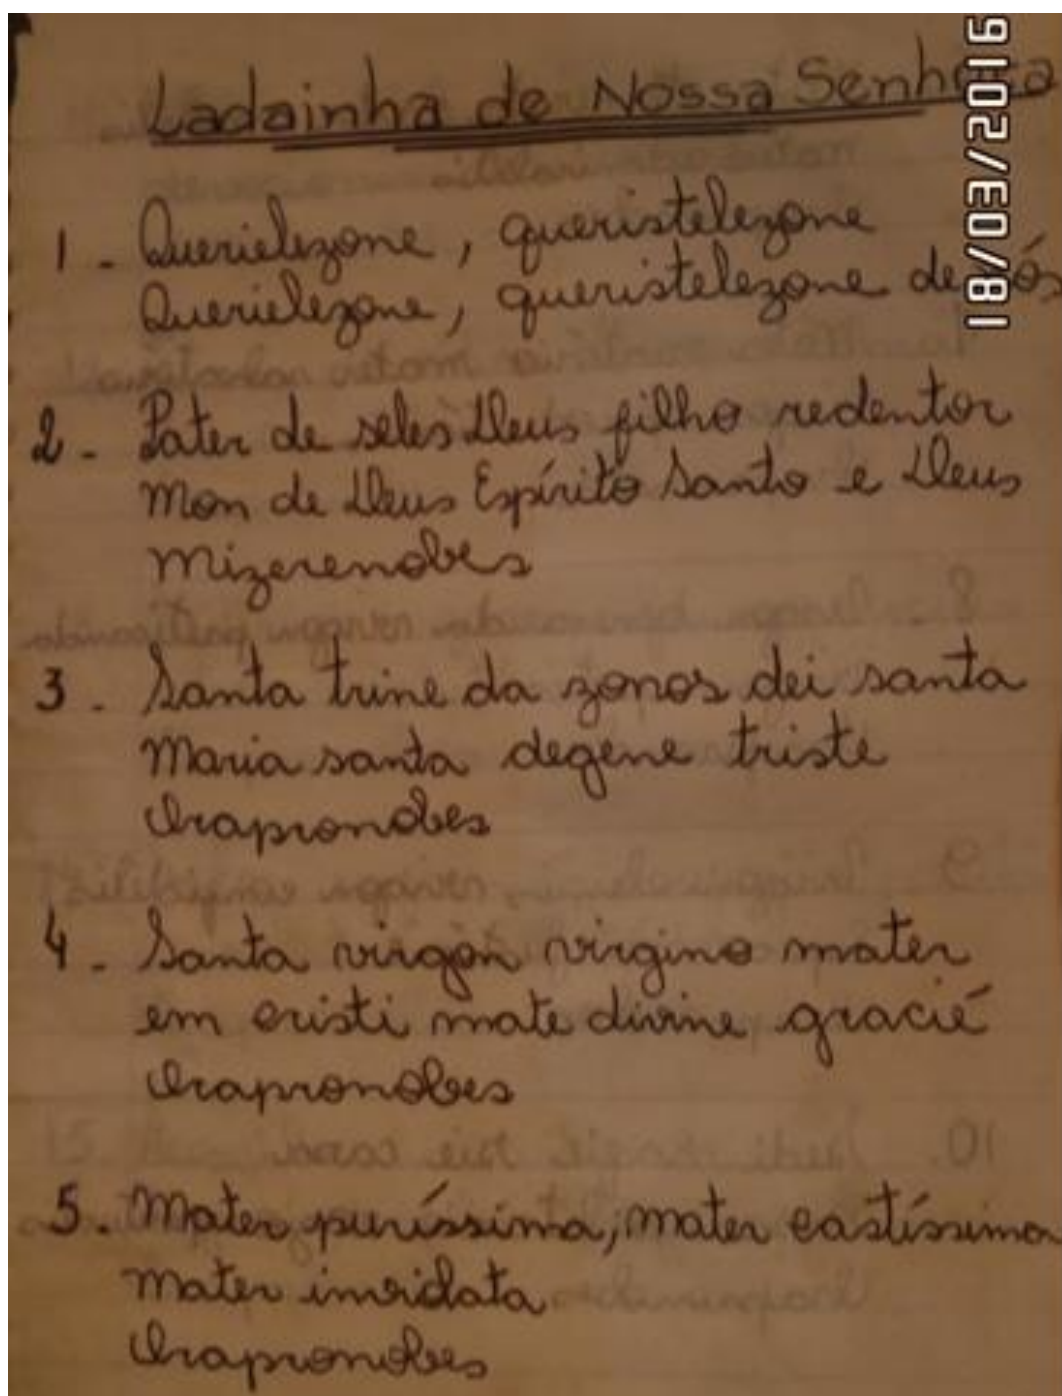 Ladainha de Nossa Senhora
18/03/2016
1 - Querielezone, queristelezone
Querielezone, queristelezone de nós
2 - Pater de seles Deus filho redentor
mon de Deus Espírito Santo e Deus
mizerenobes
3 - Santa trine da zonos dei santa
Maria santa degene triste
Orapronobes
4 - Santa virgon virgino mater
em cristi mate divine gracié
Orapronobes
5 - Mater puríssima, mater castíssima
mater imvidata
Orapronobes